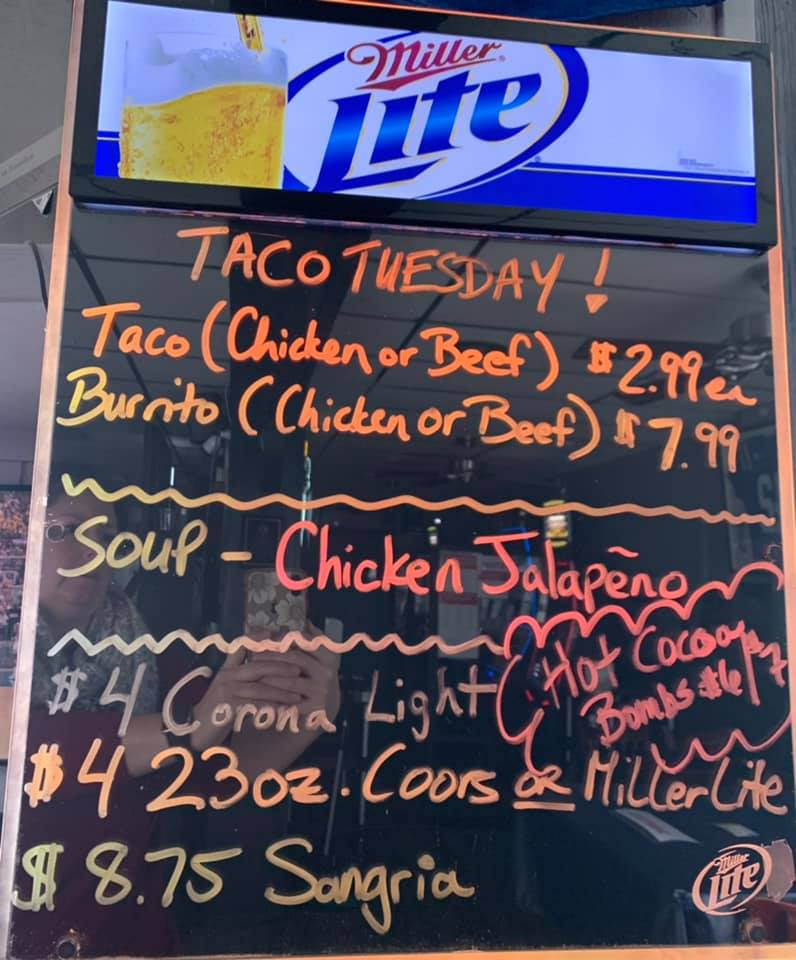 Miller
Lite
TACO TUESDAY!
Taco (Chicken or Beef) $2.99 ea
Burrito (Chicken or Beef) $7.99
SOUP - Chicken Jalapeño
$4 Corona Light
Hot Cocoa
Bombs $6/$7
$4 23oz. Coors or Miller Lite
$8.75 Sangria
Miller
Lite